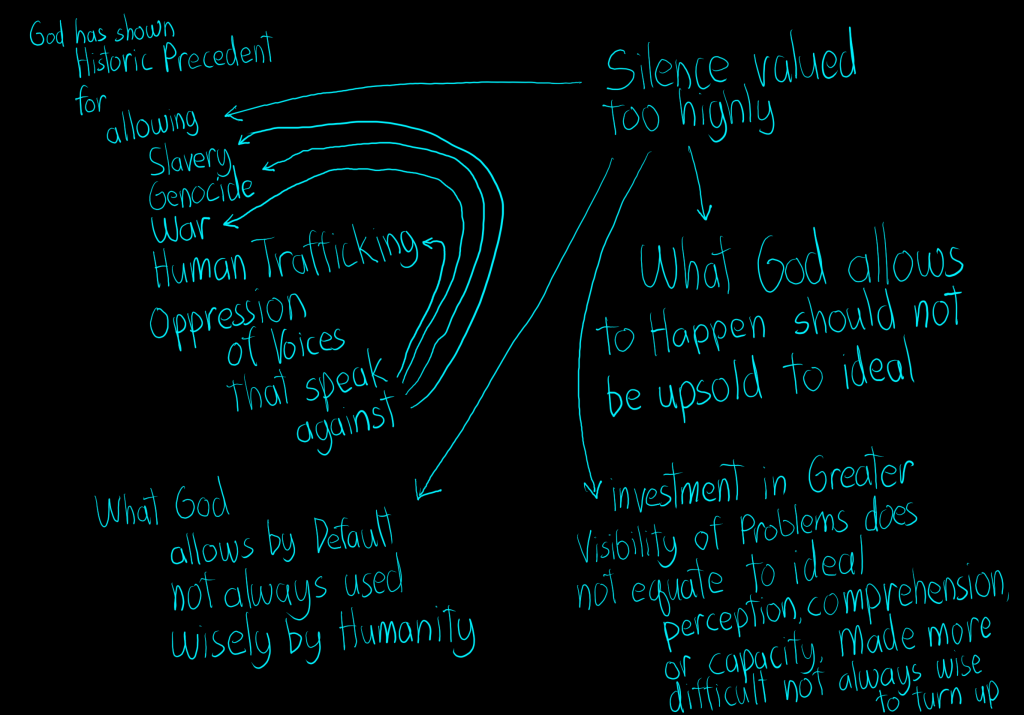 God has shown
Historic Precedent
for
allowing
Slavery,
Genocide
War
Human Trafficking
Oppression
of Voices
that speak
against
Silence valued
too highly
What God allows
to Happen should not
be upsold to ideal
What God
allows by Default
not always used
wisely by Humanity
investment in Greater
Visibility of Problems does
not equate to ideal
perception, comprehension,
or capacity. Made more
difficult not always wise
to turn up